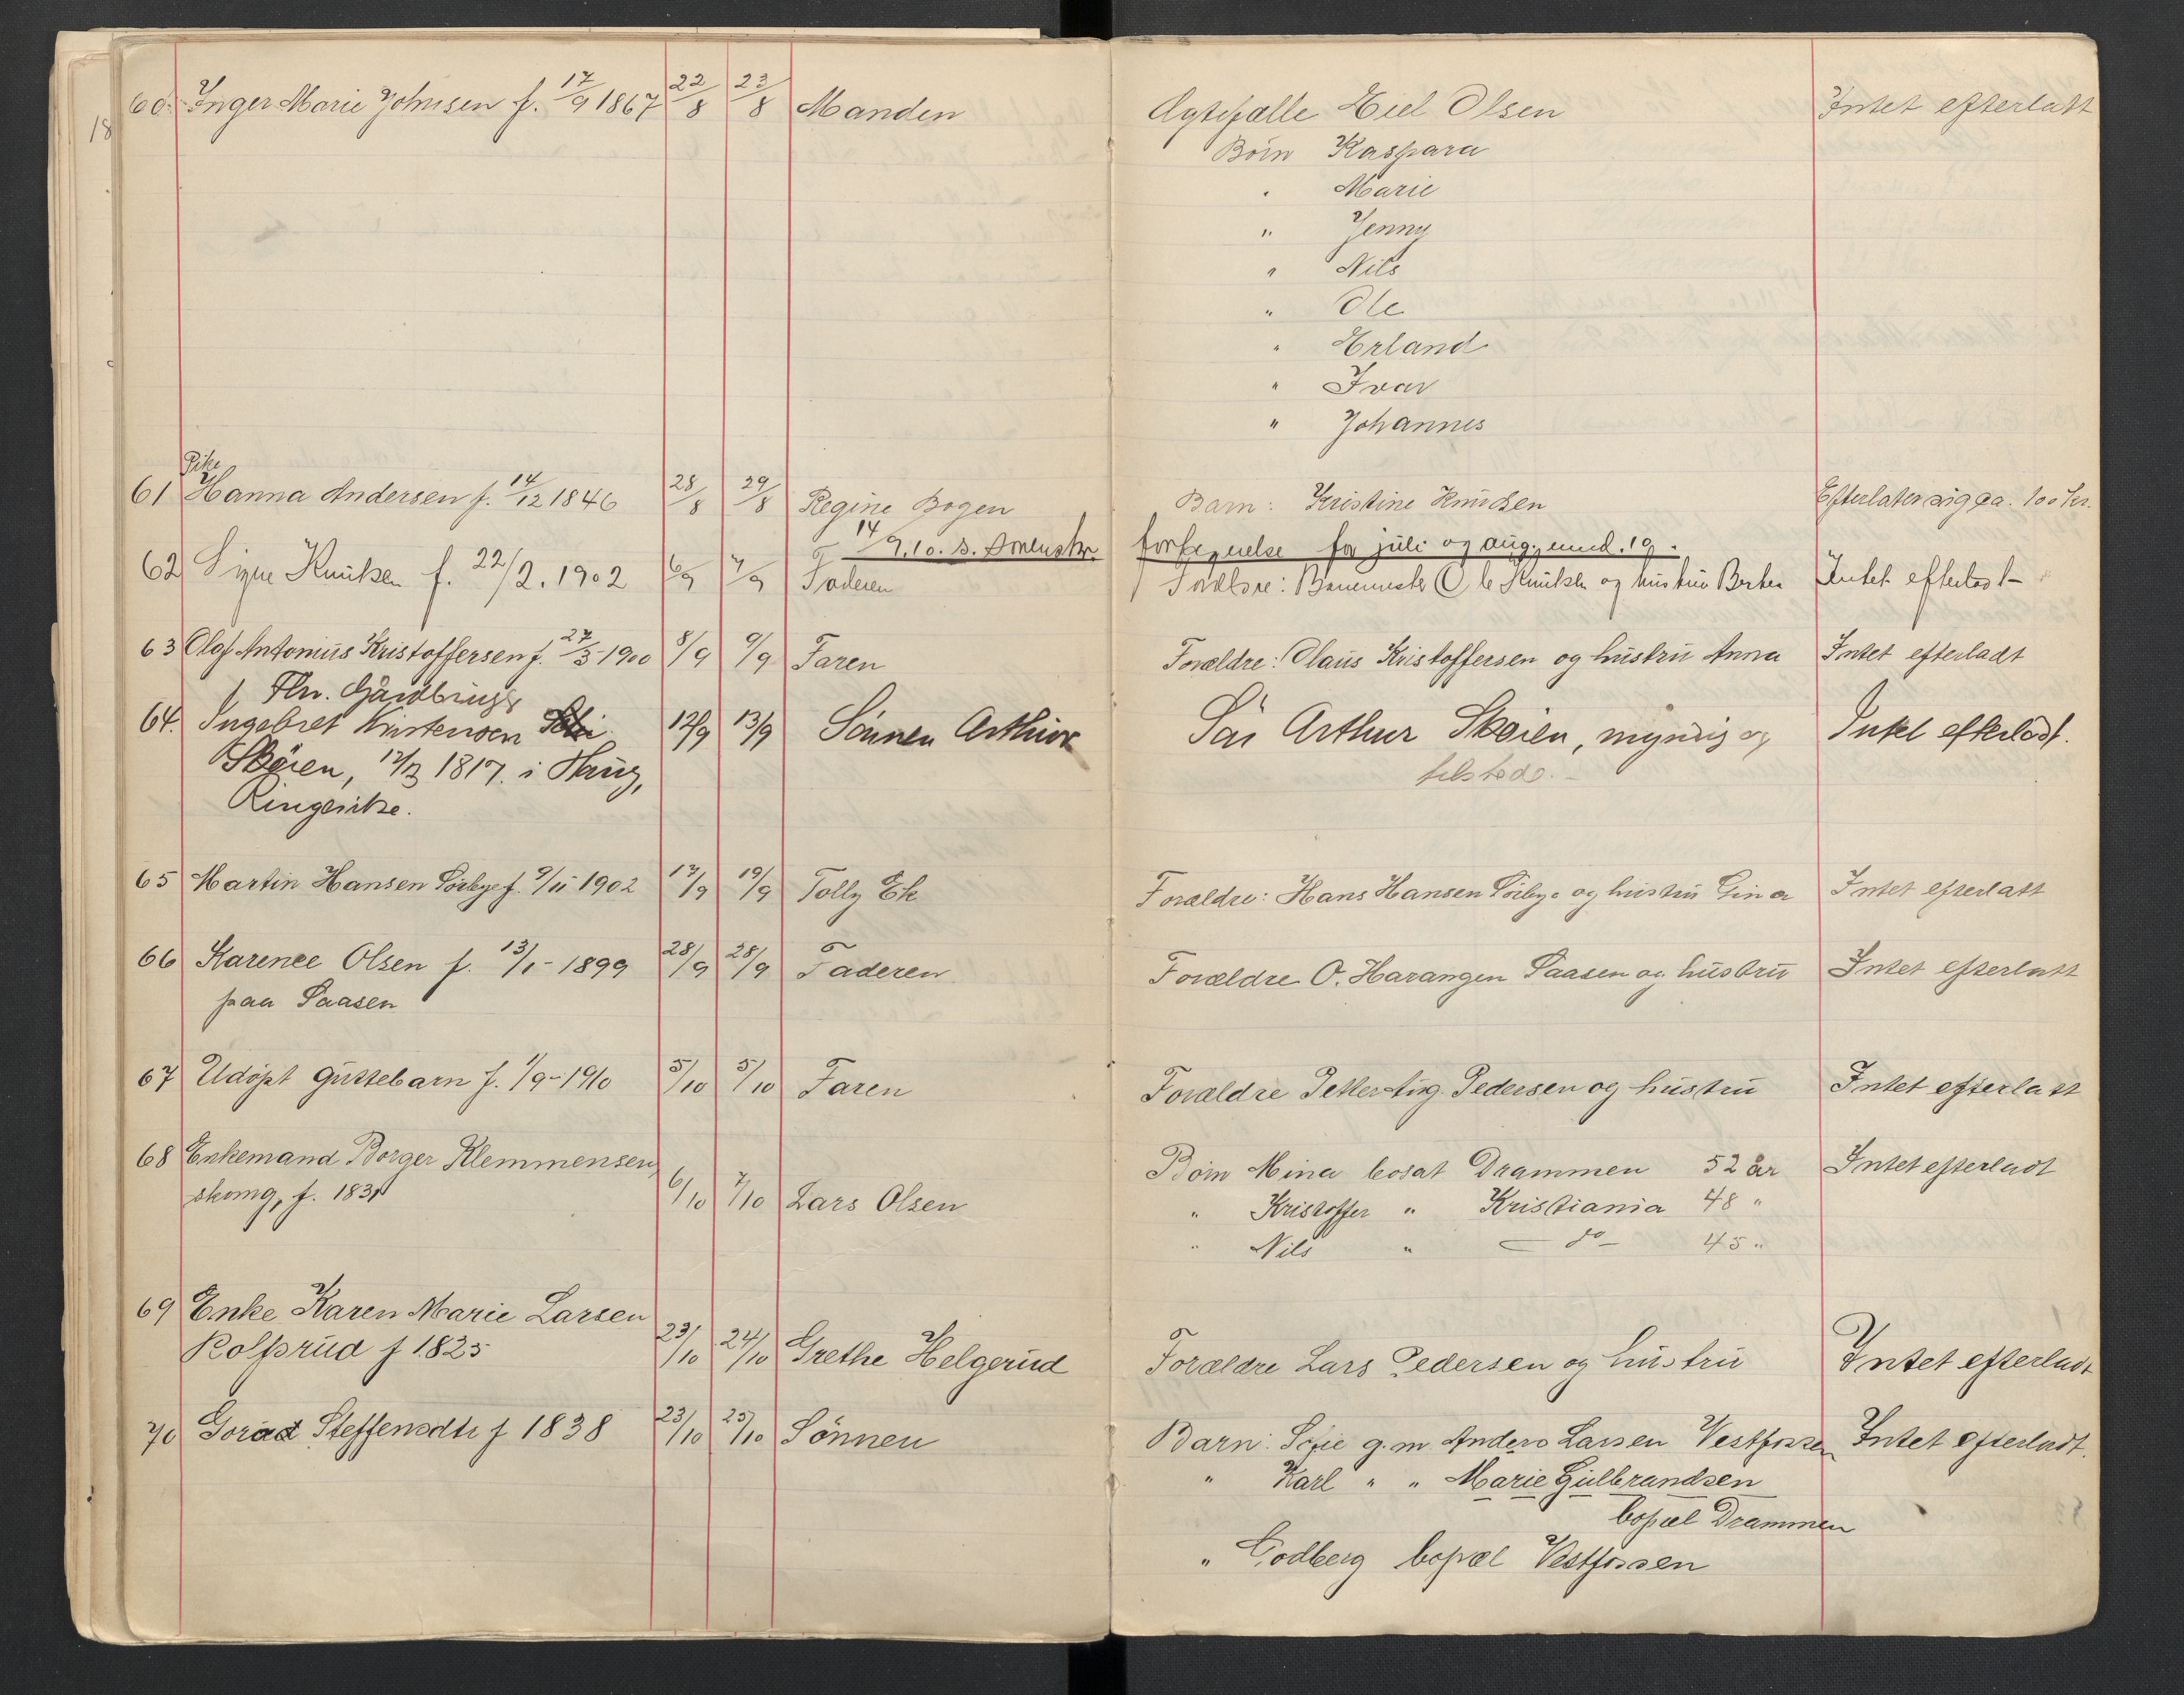 60. Inger Marie Johnsen f. 17/9 1867 22/8 23/8 Manden Ægtefælle Eiel Olsen Intet efterlatt
18
Börn Kaspara
" Marie
" Jenny
" Nils
" Ole
" Erland
" Ivar
" Johannes
Pike
61 Hanna Andersen f. 14/12 1846 28/8 29/8 Regine Bogen Barn: Kristine Knudsen Efterlater sig ca. 100 kr.
14/9.10. s. fortegnelse for juli og aug. md. 19
62 Signe Knutsen f. 22/2. 1902 6/9 7/9 Faderen Forældre: Ole Knutsen og hustru Berthe Intet efterladt
63 Olaf Antonius Kristoffersen f. 27/3-1900 8/9 9/9 Faren Forældre: Olaus Kristoffersen og hustru Anna Intet efterladt
Fhv. Gårdbruger
64. Ingebret Kristensen 12/9 13/9 Sönnen Arthur Sön Arthur Skøien, myndig og Intet efterladt.
Skøien, 1817. i Haug, tilstede.
Ringerike.
65 Martin Hansen Sörbye f. 9/11 1902 17/9 19/9 Tolly Ek Forældre: Hans Hansen Sörbye og hustru Gina Intet efterlatt
66 Karenee Olsen f. 13/1-1899 28/9 28/9 Faderen Forældre O. Harangen Saasen og hustru Intet efterlatt
paa Saasen
67 Udöpt guttebarn f. 1/9-1910 5/10 5/10 Faren Forældre Petter Aug. Pedersen og hustru Intet efterlatt
68 Enkemand Borger Klemmensen Börn Mina bosat Drammen 52 år Intet efterladt
f. 1831 6/10 7/10 Lars Olsen " Kristoffer " Kristiania 48 "
" Nils " — do — 45 "
69 Enke Karen Marie Larsen
Rolfsrud f 1825 23/10 24/10 Grethe Helgerud Forældre Lars Pedersen og hustru Intet efterladt
70 Goroid Steffensdtr f 1838 23/10 25/10 Sönnen Barn: Sofie g. m Anders Larsen Vestfossen Intet efterladt.
" Karl " " Marie Gulbrandsen
bopæl Drammen
" Godberg bopæl Vestfossen